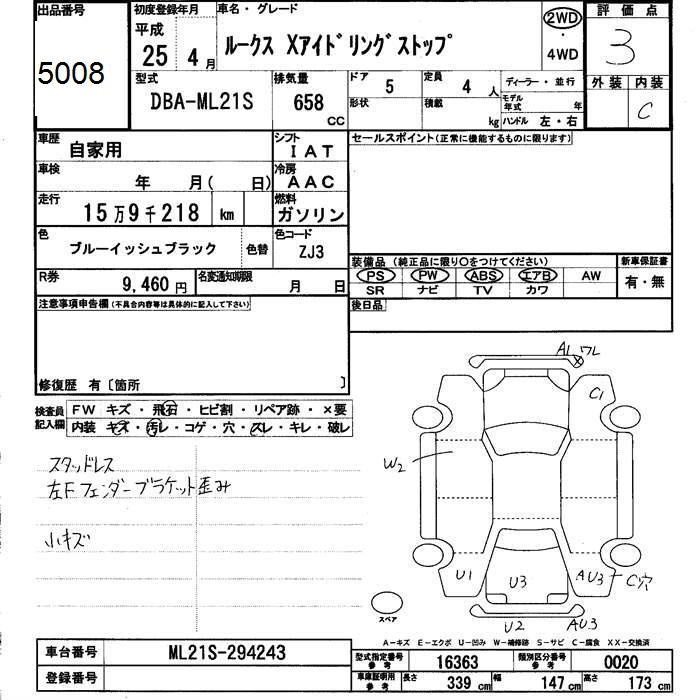 出品番号
5008
初度登録年月
平成
25 年 4 月
車名・グレード
ルークス Xアイドリングストップ
2WD
・
4WD
評価点
3
外装 内装
C
型式
DBA-ML21S
排気量
658
CC
ドア
5
定員
4 人
形状
積載
kg
ディーラー・並行
モデル年式 年
ハンドル 左・右
車歴
自家用
シフト
IAT
車検
年 月( 日)
冷房
AAC
走行
15万9千218 km
燃料
ガソリン
色
ブルーイッシュブラック
色替
色コード
ZJ3
R券
9,460 円
名変通知期限
月 日
セールスポイント(正常に機能するものに限ります)
装備品(純正品に限り〇をつけてください)
新車保証書
PS PW ABS エアB AW
SR ナビ TV カワ
有・無
後日品
注意事項申告欄(不具合内容等は具体的に記入して下さい)
修復歴 有〔箇所 〕
検査員記入欄
FW キズ・飛石・ヒビ割・リペア跡・×要
内装・キズ・汚レ・コゲ・穴・スレ・キレ・破レ
スタッドレス
左Fフェンダーブラケット歪み
小キズ
A1 ワレ
C1
W2
U1
U3
AU3
C穴
U2
AU3
スペア
A-キズ E-エクボ U-凹み W-補修跡 S-サビ C-腐食 XX-交換済
車台番号
ML21S-294243
登録番号
型式指定番号 参考
16363
類別区分番号 参考
0020
車庫証明用 参考
長さ 339 cm 幅 147 cm 高さ 173 cm